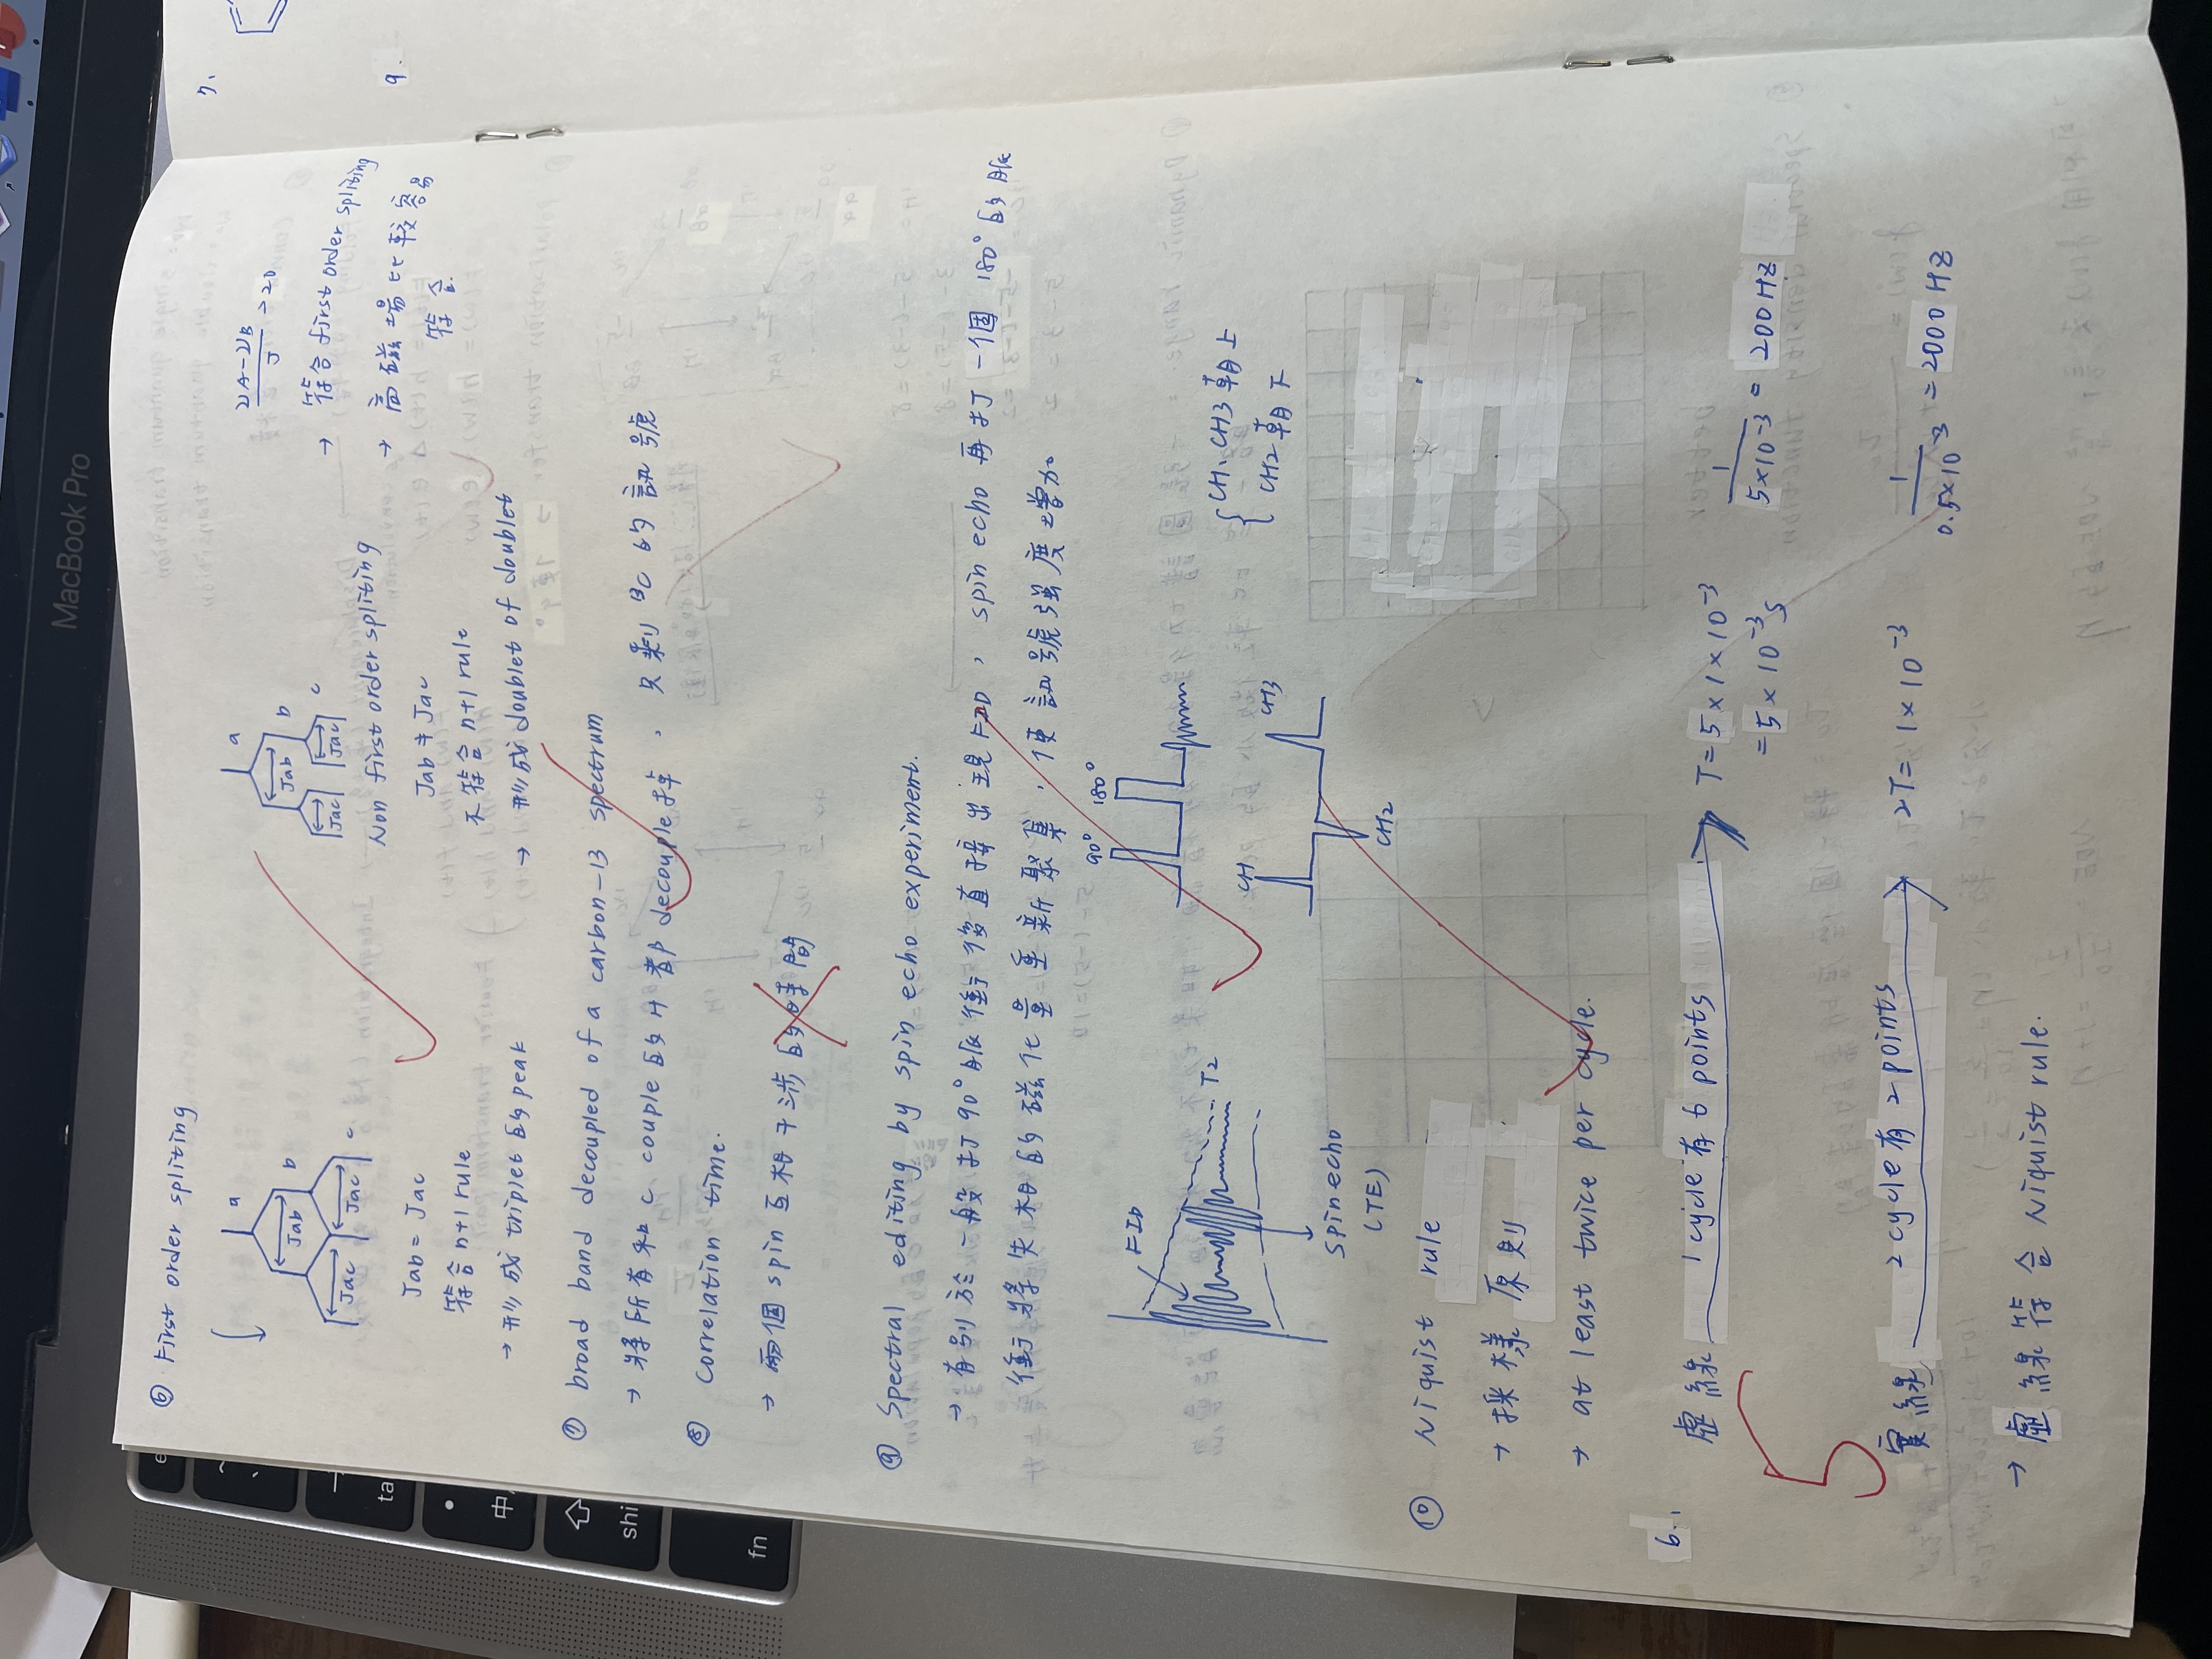 MacBook Pro
⑥ First order spliting
a
Jab
b
Jac
Jac
c
Jab = Jac
符合 n+1 rule
→ 形成 triplet 的 peak
a
Jab
b
Jac
Jac
c
Non first order spliting
Jab ≠ Jac
不符合 n+1 rule
→ 形成 doublet of doublet
νA-νB
J
>20
→ 符合 first order spliting
→ 高磁場比較容易
符合
⑦ broad band decoupled of a carbon-13 spectrum
→ 將所有和 C couple 的 H 都 decouple 掉, 只剩 ¹³C 的訊號
⑧ correlation time.
→ 兩個 spin 互相干涉的時間
⑨ Spectral editing by spin echo experiment.
→ 有別於一般打 90° 脈衝後直接出現 FID, spin echo 再打一個 180° 的脈
衝將失相的磁化量重新聚集, 使訊號強度增加
FID
T2
spin echo
(TE)
90° 180°
CH
CH3
CH2
CH、CH3 朝上
CH2 朝下
⑩ Niquist rule
→ 採樣原則
→ at least twice per cycle.
6.
虛線 1 cycle 有 6 points
T= 5×1×10⁻³
= 5×10⁻³s
1
5×10⁻³
= 200 HZ
5
實線 2 cycle 有 2 points
2T= 1×10⁻³
1
0.5×10⁻³
= 2000 HZ
→ 虛線符合 Niquist rule.
7.
9.
中
fn